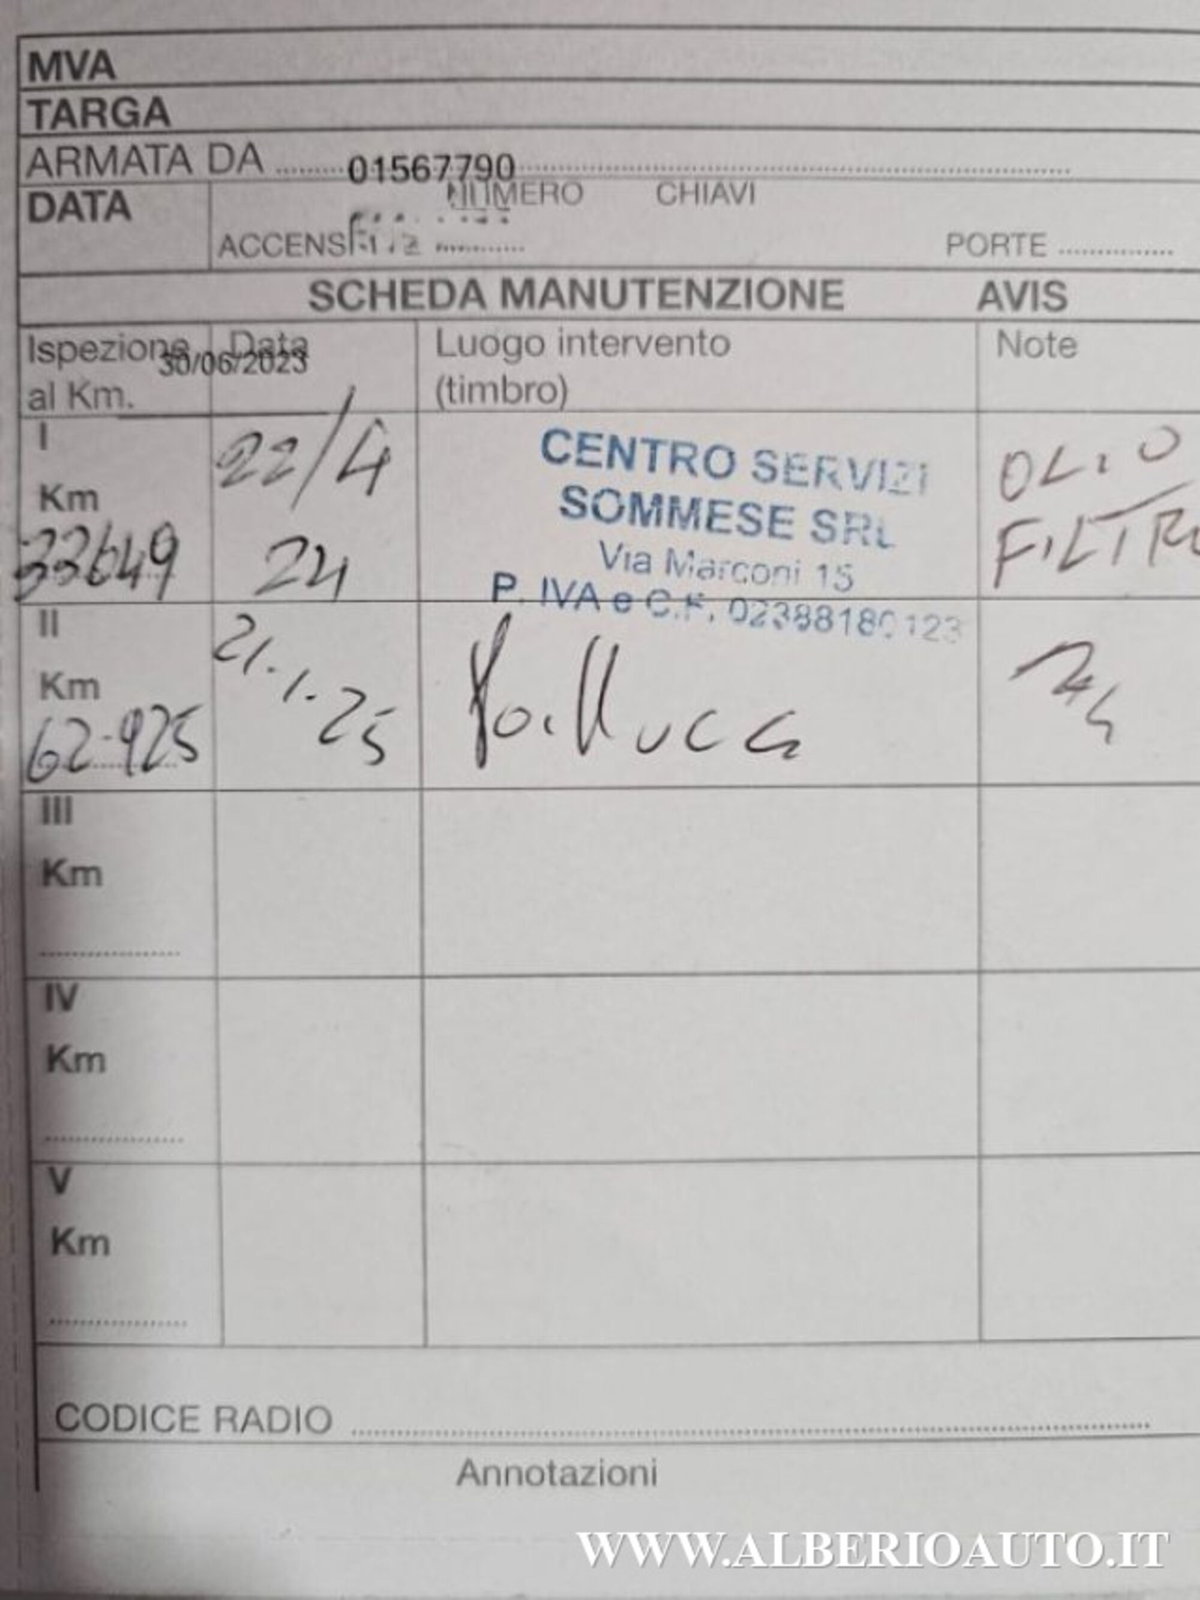 MVA
TARGA
ARMATA DA 01567790
DATA NUMERO CHIAVI
ACCENS PORTE
SCHEDA MANUTENZIONE AVIS
Ispezione Data Luogo intervento Note
30/06/2023
al Km. (timbro)
I 22/4 CENTRO SERVIZI OLIO
Km SOMMESE SRL FILTRO
33649 24 Via Marconi 15
P. IVA e C.F. 02388180123
II 21.1.25
Km
62.925
III
Km
IV
Km
V
Km
CODICE RADIO
Annotazioni
WWW.ALBERIOAUTO.IT